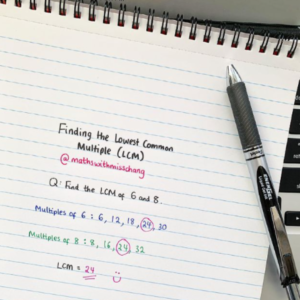 Finding the Lowest Common
Multiple (LCM)
@mathswithmisschang
Q: Find the LCM of 6 and 8.
Multiples of 6 : 6, 12, 18, 24, 30
Multiples of 8 : 8, 16, 24, 32
LCM = 24